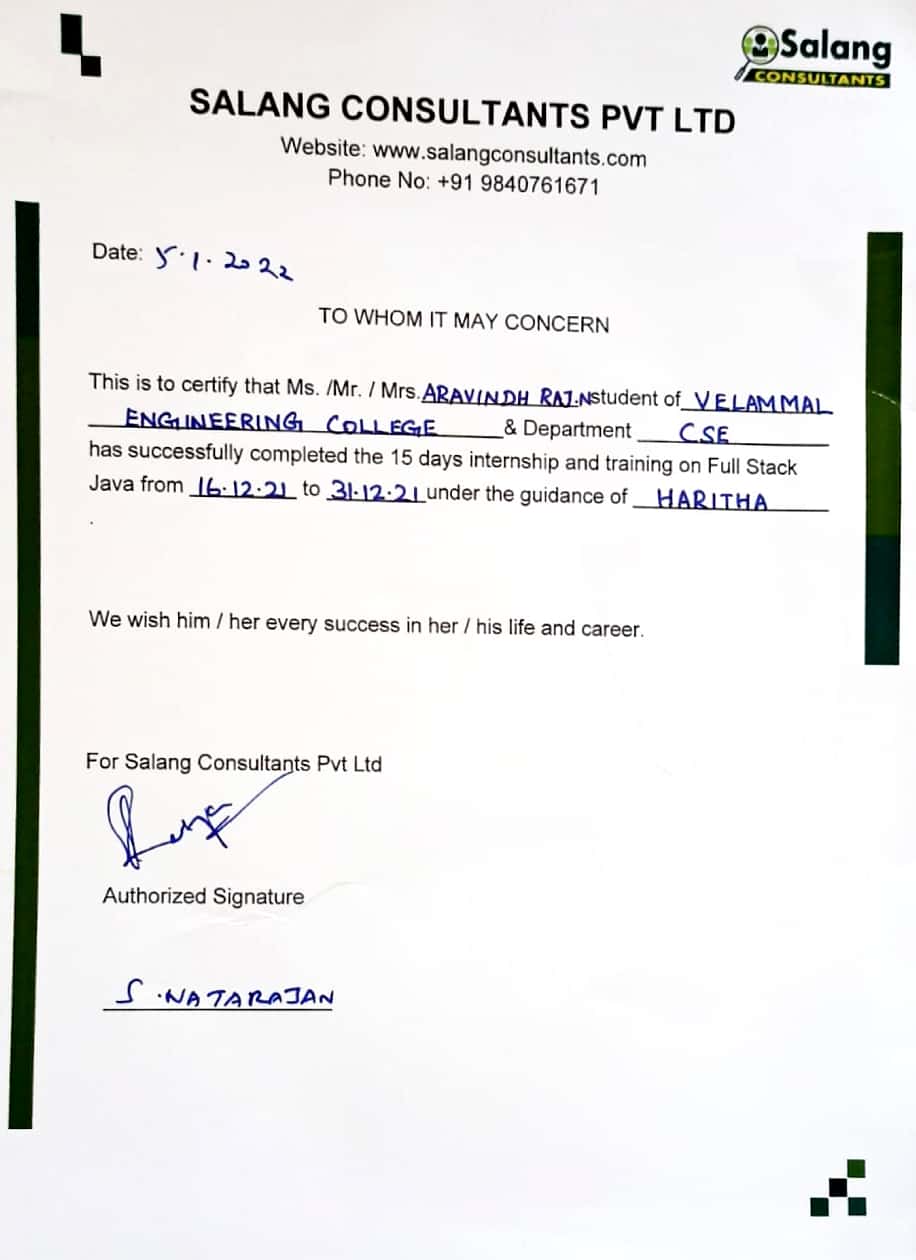 Salang
CONSULTANTS
SALANG CONSULTANTS PVT LTD
Website: www.salangconsultants.com
Phone No: +91 9840761671
Date: 5.1.2022
TO WHOM IT MAY CONCERN
This is to certify that Ms. /Mr. / Mrs. ARAVINDH RAJ.N student of VELAMMAL
ENGINEERING COLLEGE & Department CSE
has successfully completed the 15 days internship and training on Full Stack
Java from 16.12.21 to 31.12.21 under the guidance of HARITHA
.
We wish him / her every success in her / his life and career.
For Salang Consultants Pvt Ltd
Authorized Signature
S.NATARAJAN